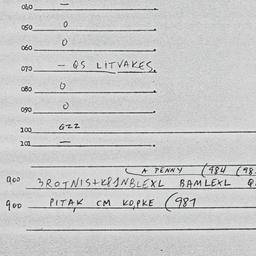 040 —
050 0
060 0
070 — QS LITVAKES.
080 0
090 0
100 GZZ
101 —
A PENNY (484 (48
900 3ROTNIS+K81NBLEXL BAMLEXL Q
900 PITAK CM KOPKE (481